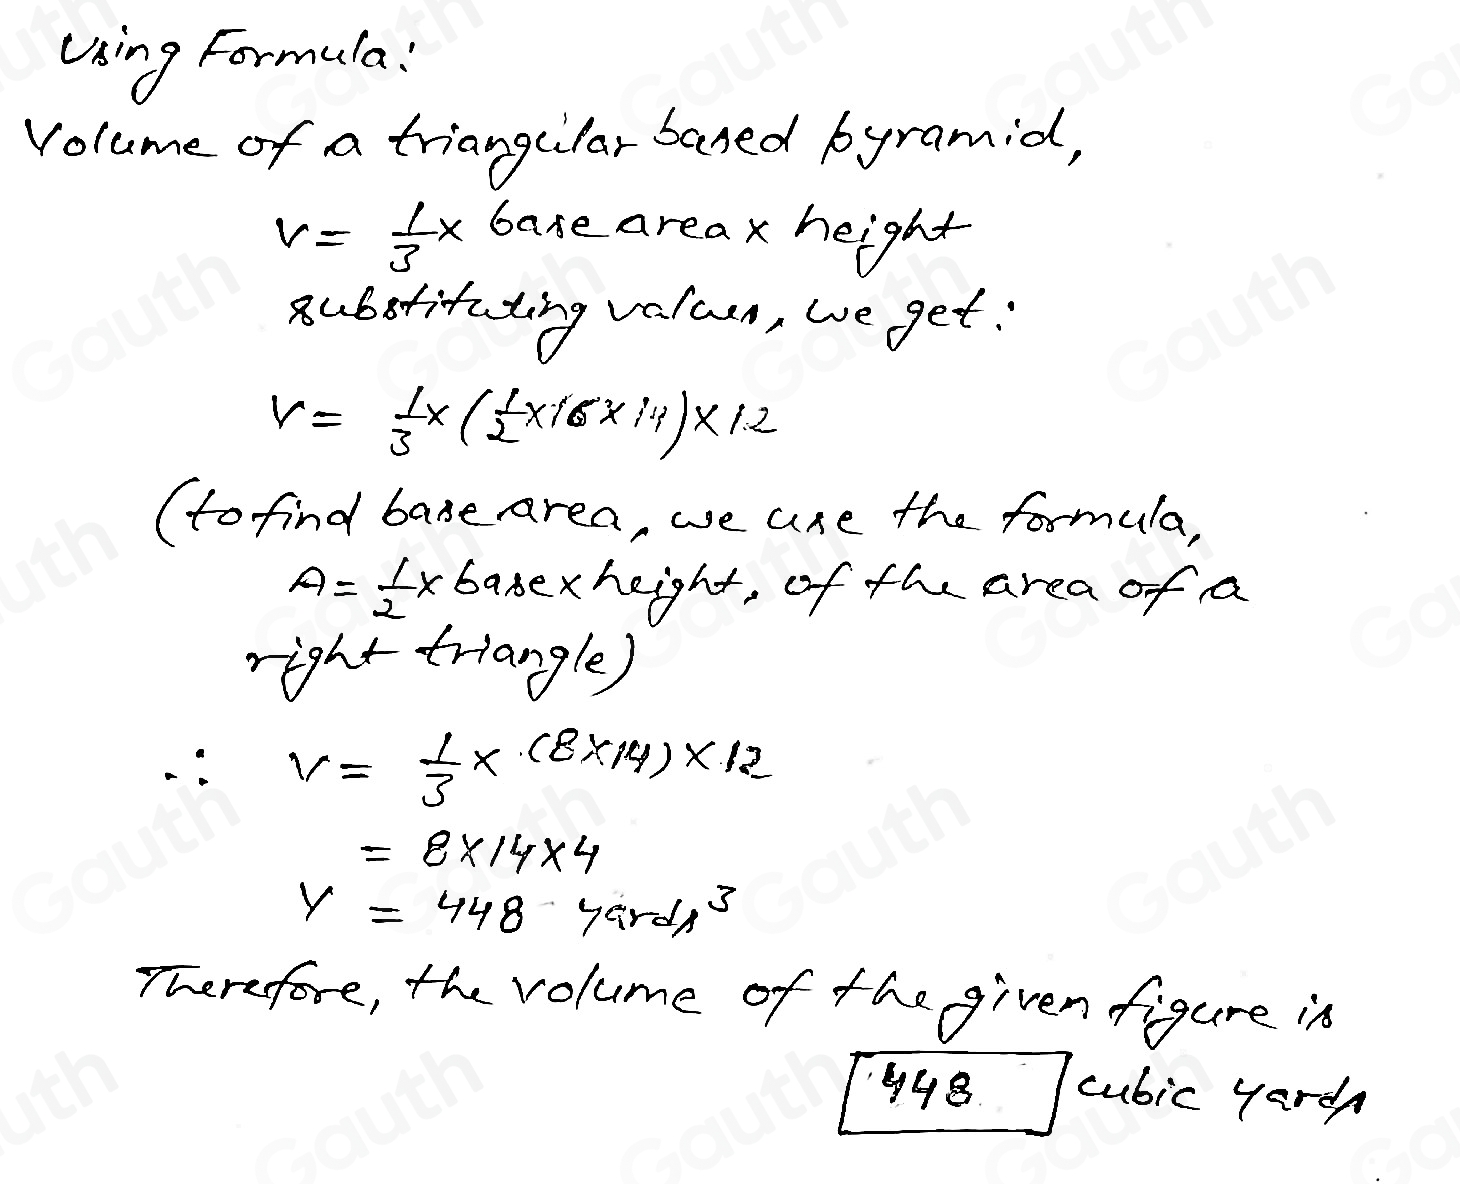 Using Formula:
Volume of a triangular based pyramid,
V = 1/3 × base area × height
substituting values, we get:
V = 1/3 × (1/2 × 16 × 14) × 12
(to find base area, we use the formula,
A = 1/2 × base × height, of the area of a
right triangle)
∴ V = 1/3 × (8 × 14) × 12
= 8 × 14 × 4
V = 448 yards³
Therefore, the volume of the given figure is
448 cubic yards